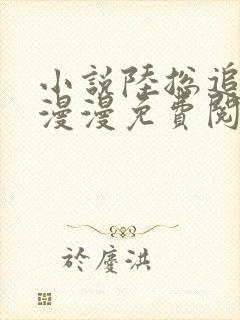 小說陸總追
漫漫免費閱
於慶洪